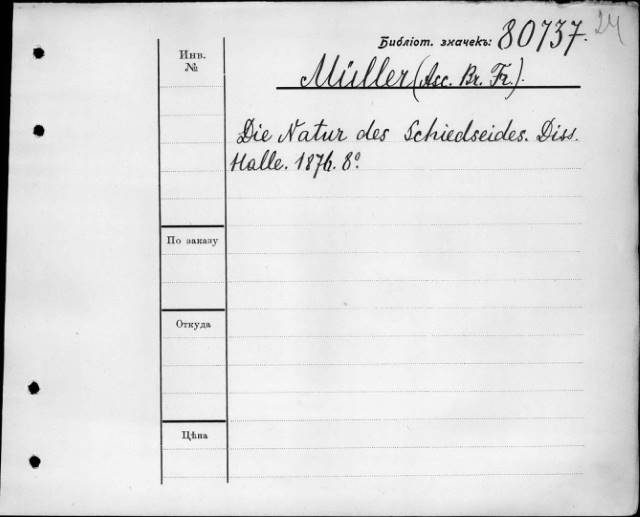 24
Библіот. значекъ: 80737.
Инв.
№
Müller (Asc. Br. Fr.).
Die Natur des Schiedseides. Diss.
Halle. 1876. 8º
По заказу
Откуда
Цѣна